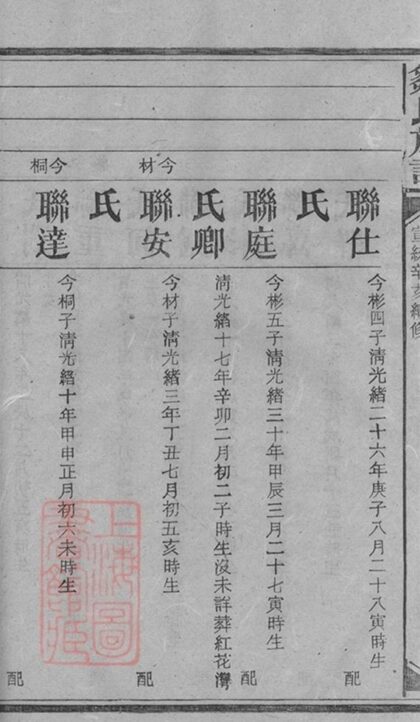 宣統辛亥續修
聯仕
今彬四子淸光緒二十六年庚子八月二十八寅時生
配
氏
聯庭
今彬五子淸光緒三十年甲辰三月二十七寅時生
配
氏卿
淸光緒十七年辛卯二月初二子時生沒未詳葬紅花灣
今材
聯安
今材子淸光緒三年丁丑七月初五亥時生
配
氏
今桐
聯達
今桐子淸光緒十年甲申正月初六未時生
配
上海圖
書館藏